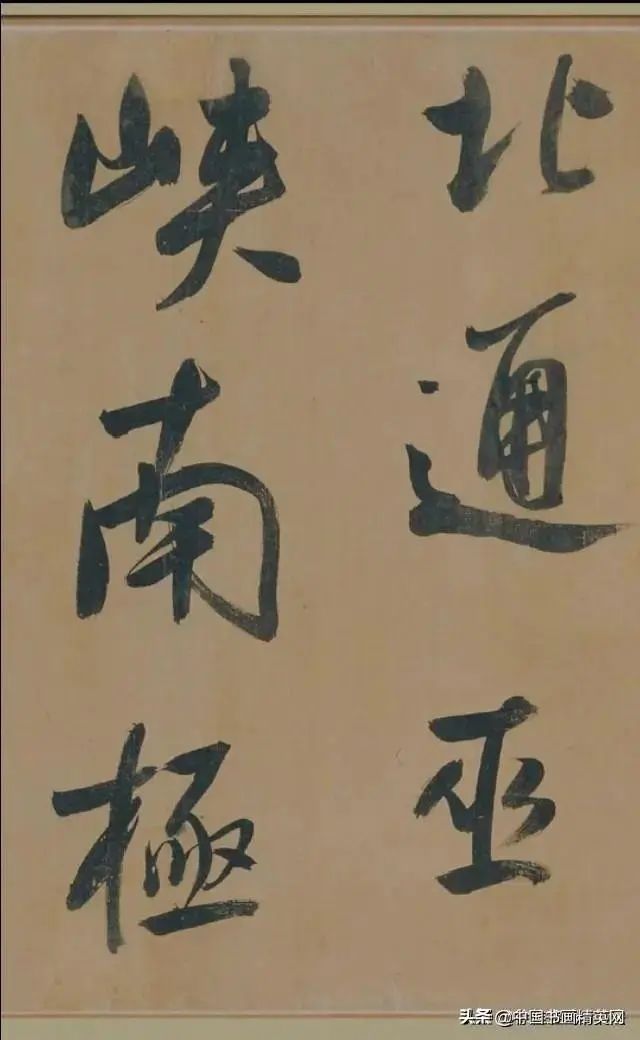 北通巫
峡南極
头条 @中国书画精英网